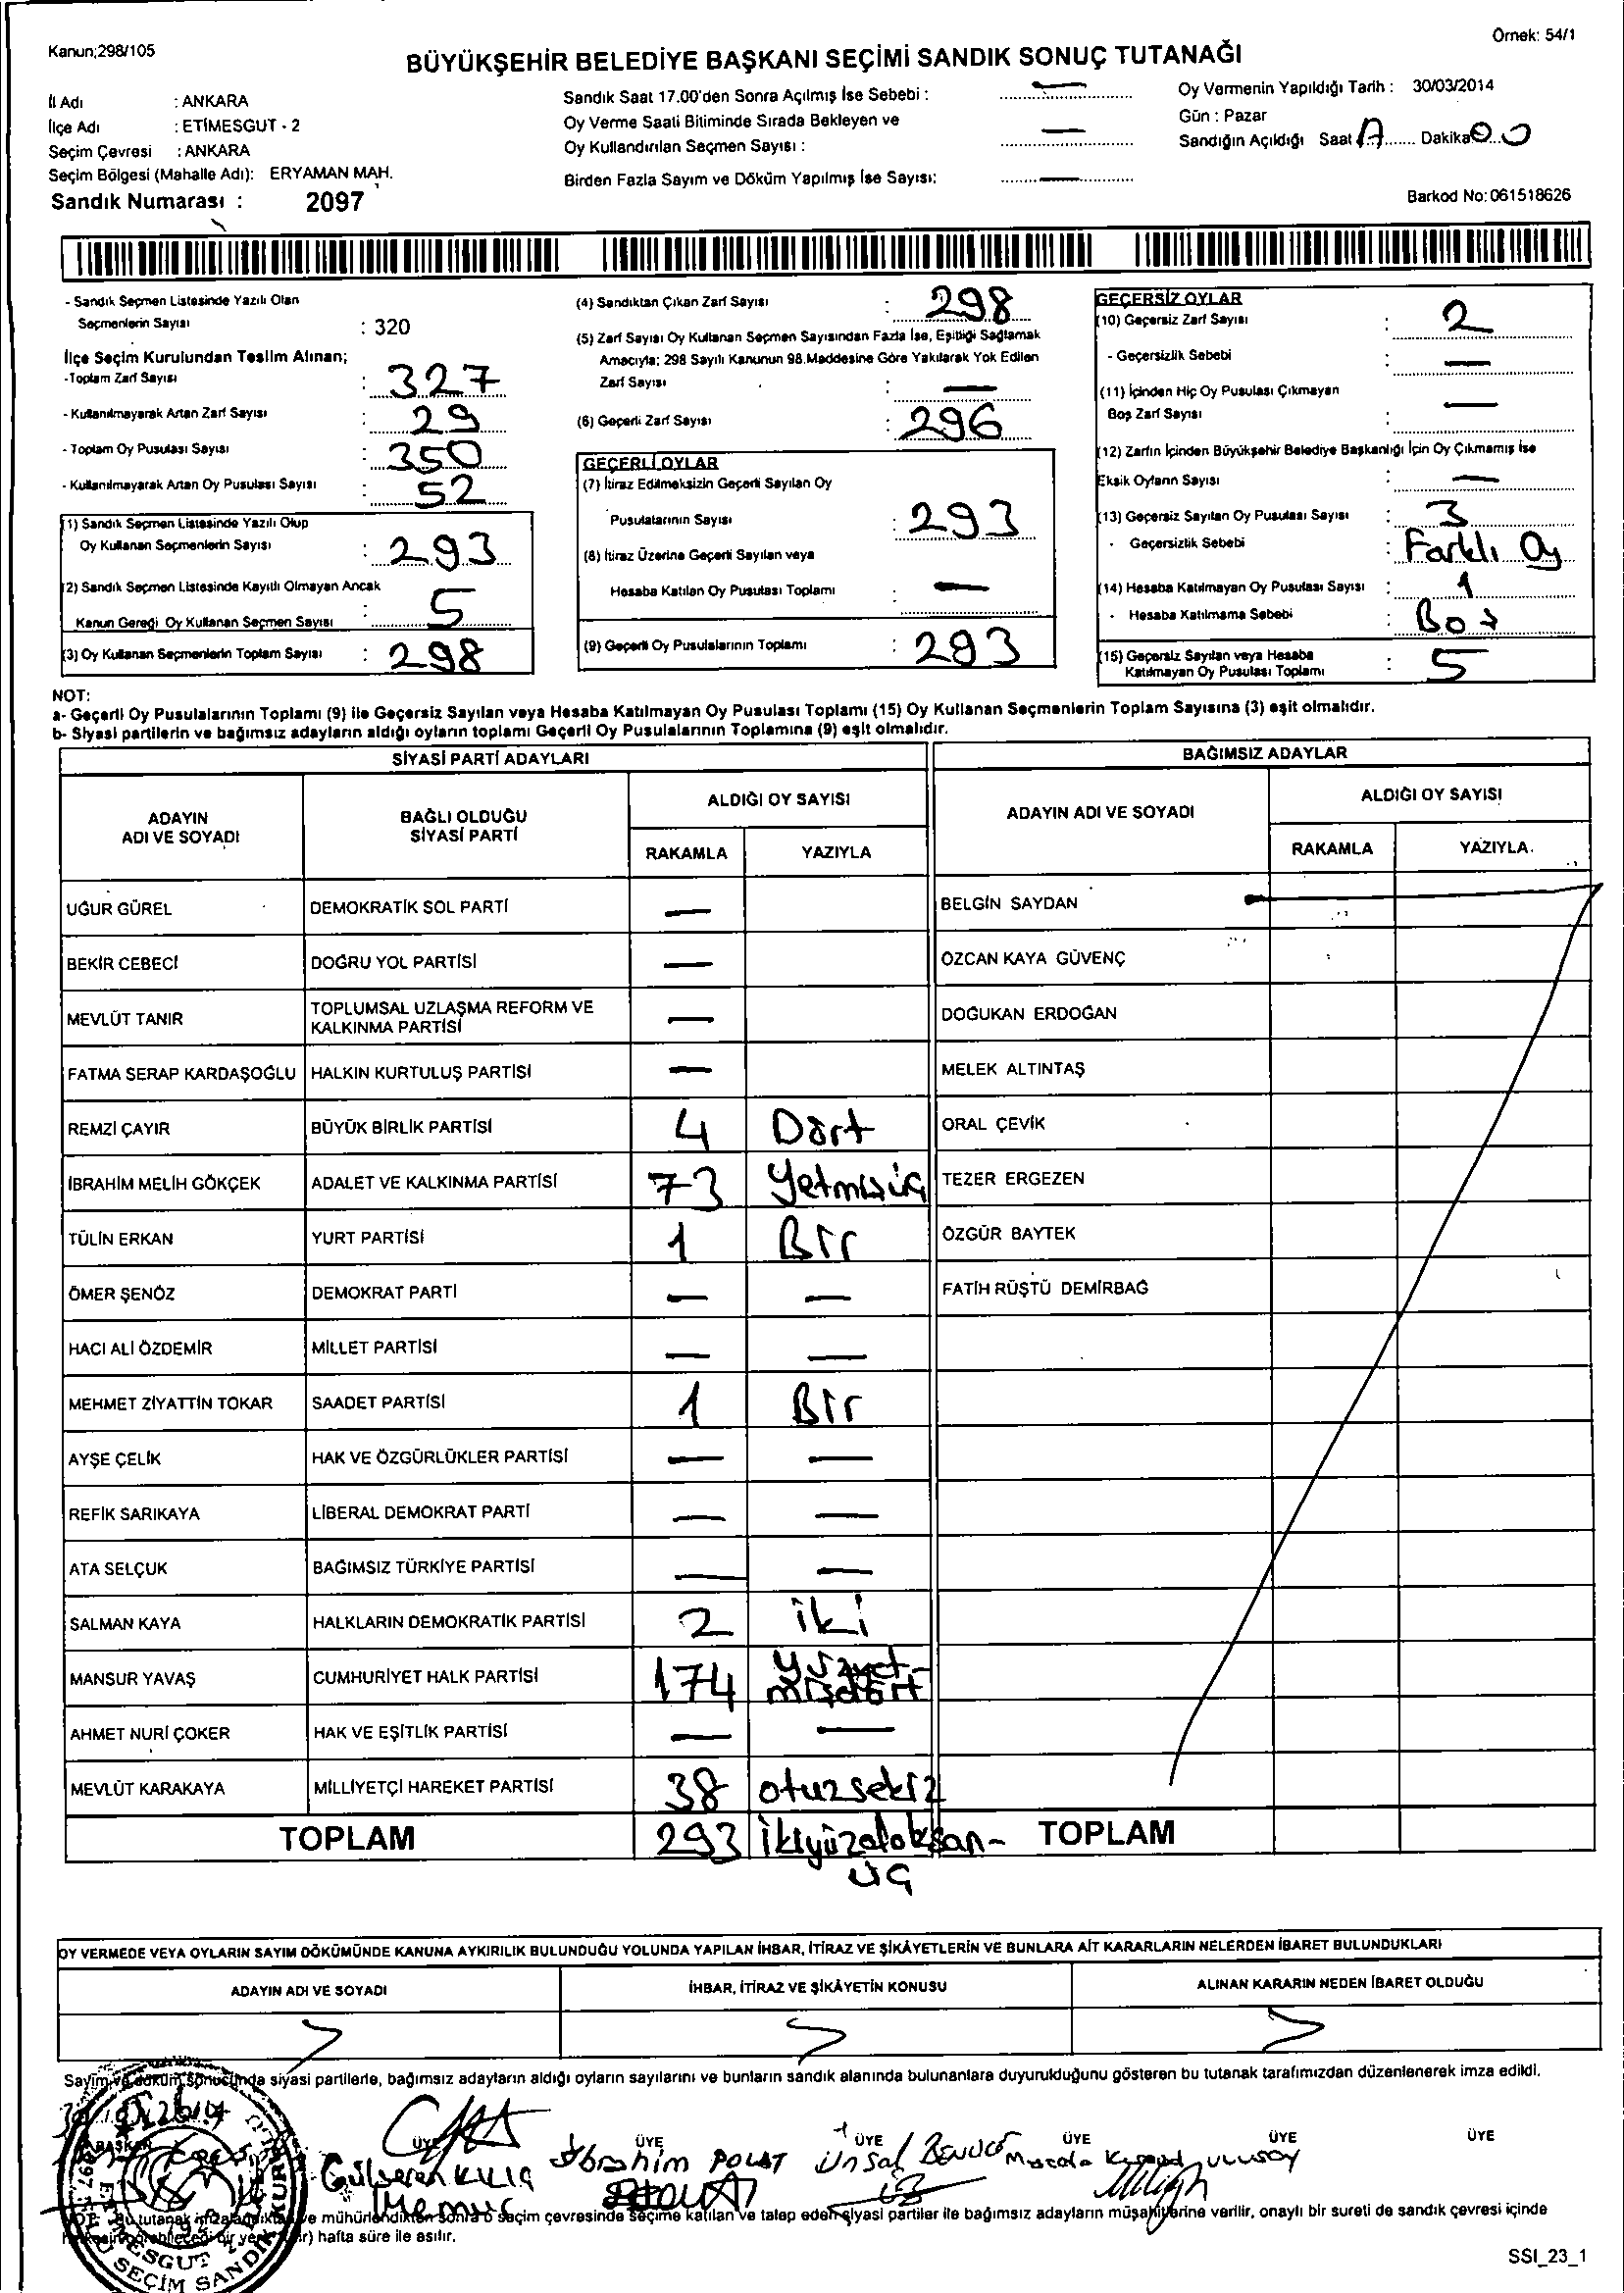 Kanun;298/105
Örnek: 54/1
BÜYÜKŞEHİR BELEDİYE BAŞKANI SEÇİMİ SANDIK SONUÇ TUTANAĞI
İl Adı : ANKARA
İlçe Adı : ETİMESGUT - 2
Seçim Çevresi : ANKARA
Seçim Bölgesi (Mahalle Adı): ERYAMAN MAH.
Sandık Numarası : 2097
Sandık Saat 17.00'den Sonra Açılmış İse Sebebi : —
Oy Verme Saati Bitiminde Sırada Bekleyen ve
Oy Kullandırılan Seçmen Sayısı : —
Birden Fazla Sayım ve Döküm Yapılmış İse Sayısı: —
Oy Vermenin Yapıldığı Tarih : 30/03/2014
Gün : Pazar
Sandığın Açıldığı Saat Dakika 00
Barkod No: 061518626
- Sandık Seçmen Listesinde Yazılı Olan
Seçmenlerin Sayısı : 320
İlçe Seçim Kurulundan Teslim Alınan;
-Toplam Zarf Sayısı : 327
- Kullanılmayarak Artan Zarf Sayısı : 29
- Toplam Oy Pusulası Sayısı : 350
- Kullanılmayarak Artan Oy Pusulası Sayısı : 52
(1) Sandık Seçmen Listesinde Yazılı Olup
Oy Kullanan Seçmenlerin Sayısı : 293
(2) Sandık Seçmen Listesinde Kayıtlı Olmayan Ancak
Kanun Gereği Oy Kullanan Seçmen Sayısı : 5
(3) Oy Kullanan Seçmenlerin Toplam Sayısı : 298
(4) Sandıktan Çıkan Zarf Sayısı : 298
(5) Zarf Sayısı Oy Kullanan Seçmen Sayısından Fazla İse, Eşitliği Sağlamak
Amacıyla; 298 Sayılı Kanunun 98.Maddesine Göre Yakılarak Yok Edilen
Zarf Sayısı : —
(6) Geçerli Zarf Sayısı : 296
GEÇERLİ OYLAR
(7) İtiraz Edilmeksizin Geçerli Sayılan Oy
Pusulalarının Sayısı : 293
(8) İtiraz Üzerine Geçerli Sayılan veya
Hesaba Katılan Oy Pusulası Toplamı : —
(9) Geçerli Oy Pusulalarının Toplamı : 293
GEÇERSİZ OYLAR
(10) Geçersiz Zarf Sayısı : 2
- Geçersizlik Sebebi : —
(11) İçinden Hiç Oy Pusulası Çıkmayan
Boş Zarf Sayısı : —
(12) Zarfın İçinden Büyükşehir Belediye Başkanlığı İçin Oy Çıkmamış İse
Eksik Oyların Sayısı : —
(13) Geçersiz Sayılan Oy Pusulası Sayısı : 3
- Geçersizlik Sebebi : Farklı Oy
(14) Hesaba Katılmayan Oy Pusulası Sayısı : 1
- Hesaba Katılmama Sebebi : Boş
(15) Geçersiz Sayılan veya Hesaba
Katılmayan Oy Pusulası Toplamı : 5
NOT:
a- Geçerli Oy Pusulalarının Toplamı (9) ile Geçersiz Sayılan veya Hesaba Katılmayan Oy Pusulası Toplamı (15) Oy Kullanan Seçmenlerin Toplam Sayısına (3) eşit olmalıdır.
b- Siyasi partilerin ve bağımsız adayların aldığı oyların toplamı Geçerli Oy Pusulalarının Toplamına (9) eşit olmalıdır.
SİYASİ PARTİ ADAYLARI
BAĞIMSIZ ADAYLAR
ADAYIN
ADI VE SOYADI
BAĞLI OLDUĞU
SİYASİ PARTİ
ALDIĞI OY SAYISI
RAKAMLA YAZIYLA
ADAYIN ADI VE SOYADI
ALDIĞI OY SAYISI
RAKAMLA YAZIYLA
UĞUR GÜREL DEMOKRATİK SOL PARTİ — BELGİN SAYDAN
BEKİR CEBECİ DOĞRU YOL PARTİSİ — ÖZCAN KAYA GÜVENÇ
MEVLÜT TANIR TOPLUMSAL UZLAŞMA REFORM VE
KALKINMA PARTİSİ — DOĞUKAN ERDOĞAN
FATMA SERAP KARDAŞOĞLU HALKIN KURTULUŞ PARTİSİ — MELEK ALTINTAŞ
REMZİ ÇAYIR BÜYÜK BİRLİK PARTİSİ 4 Dört ORAL ÇEVİK
İBRAHİM MELİH GÖKÇEK ADALET VE KALKINMA PARTİSİ 73 Yetmişüç TEZER ERGEZEN
TÜLİN ERKAN YURT PARTİSİ 1 Bir ÖZGÜR BAYTEK
ÖMER ŞENÖZ DEMOKRAT PARTİ — — FATİH RÜŞTÜ DEMİRBAĞ
HACI ALİ ÖZDEMİR MİLLET PARTİSİ — —
MEHMET ZİYATTİN TOKAR SAADET PARTİSİ 1 Bir
AYŞE ÇELİK HAK VE ÖZGÜRLÜKLER PARTİSİ — —
REFİK SARIKAYA LİBERAL DEMOKRAT PARTİ — —
ATA SELÇUK BAĞIMSIZ TÜRKİYE PARTİSİ — —
SALMAN KAYA HALKLARIN DEMOKRATİK PARTİSİ 2 iki
MANSUR YAVAŞ CUMHURİYET HALK PARTİSİ 174 yüzyet-
mişdört
AHMET NURİ ÇOKER HAK VE EŞİTLİK PARTİSİ — —
MEVLÜT KARAKAYA MİLLİYETÇİ HAREKET PARTİSİ 38 otuzsekiz
TOPLAM 293 ikiyüzdoksan-
üç
TOPLAM
OY VERMEDE VEYA OYLARIN SAYIM DÖKÜMÜNDE KANUNA AYKIRILIK BULUNDUĞU YOLUNDA YAPILAN İHBAR, İTİRAZ VE ŞİKÂYETLERİN VE BUNLARA AİT KARARLARIN NELERDEN İBARET BULUNDUKLARI
ADAYIN ADI VE SOYADI
İHBAR, İTİRAZ VE ŞİKÂYETİN KONUSU
ALINAN KARARIN NEDEN İBARET OLDUĞU
Sayım ve döküm sonucunda siyasi partilerle, bağımsız adayların aldığı oyların sayılarını ve bunların sandık alanında bulunanlara duyurulduğunu gösteren bu tutanak tarafımızdan düzenlenerek imza edildi.
BAŞKAN ÜYE ÜYE ÜYE ÜYE ÜYE ÜYE
Gülseren KILIÇ İbrahim POLAT Ünsal
Memur
mühürlendikten sonra o seçim çevresinde seçime katılan ve talep eden siyasi partiler ile bağımsız adayların müşahitlerine verilir, onaylı bir sureti de sandık çevresi içinde
hafta süre ile asılır.
SEÇİM SANDIK
SSI_23_1